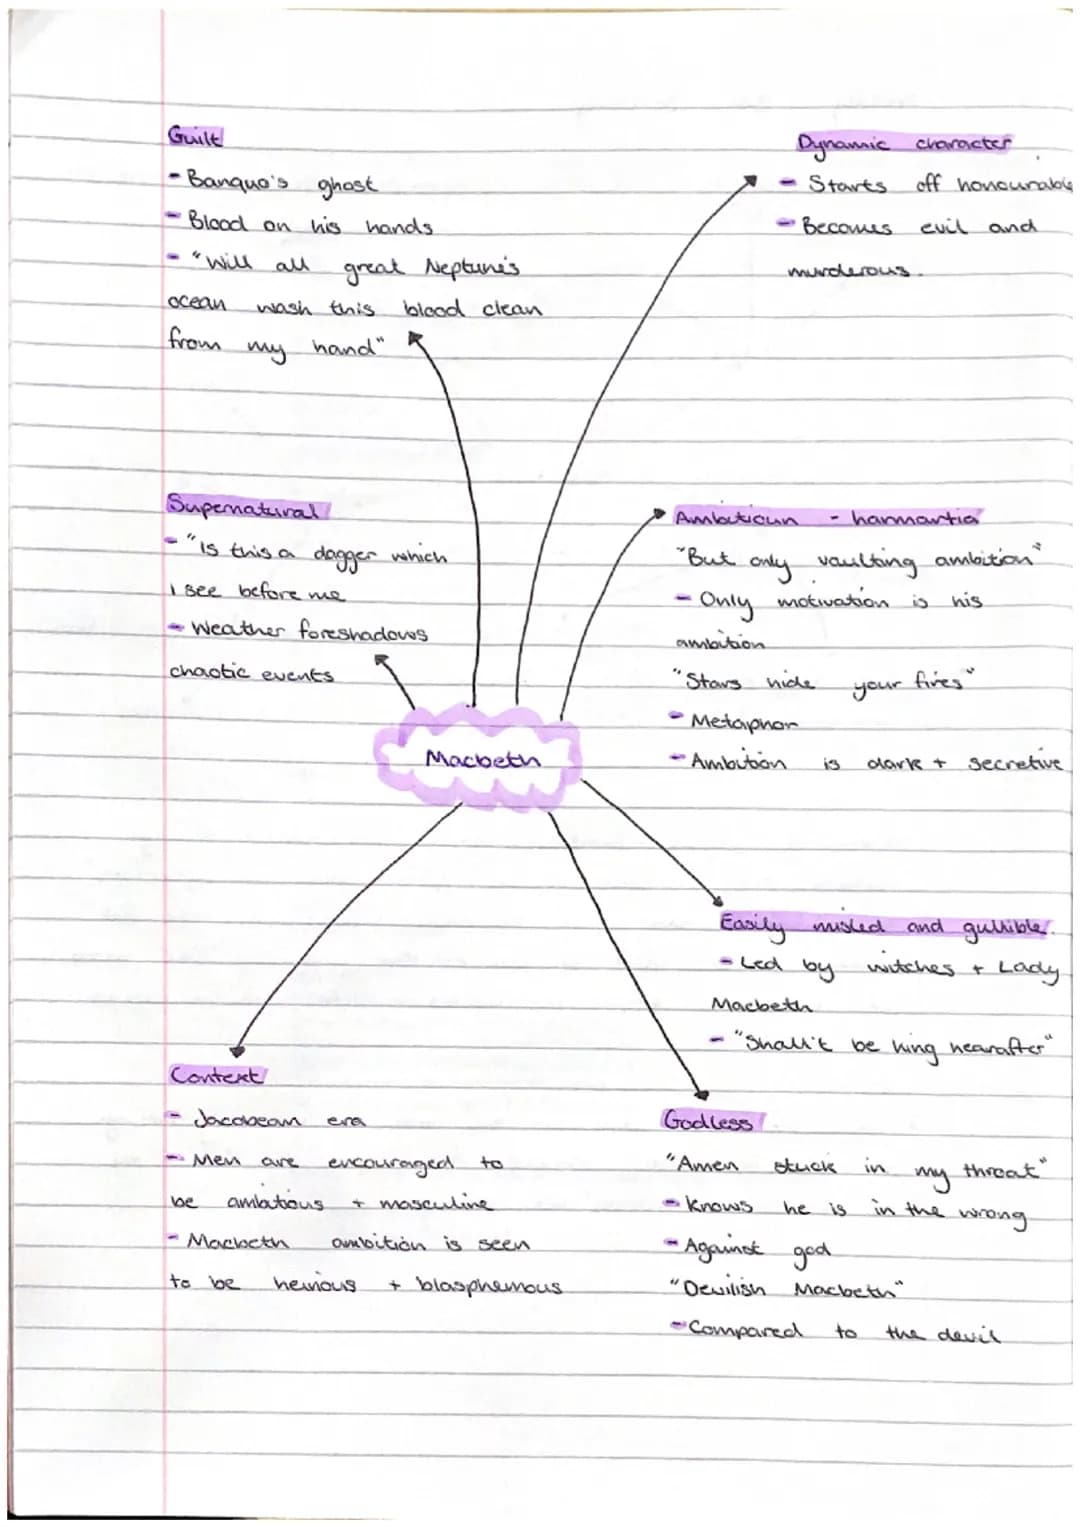 Guilt
- Banquo's ghost
- Blood on his hands
- "Will all great Neptune's
ocean wash this blood clean
from my hand"
Dynamic character
- Starts off honourable
- Becomes evil and
murderous.
Supernatural
- "Is this a dagger which
I see before me
- Weather foreshadows
chaotic events
Ambitioun - harmartia
"But only vaulting ambition"
- Only motivation is his
ambition
"Stars hide your fires"
- Metaphor
- Ambition is dark + secretive
Macbeth
Easily misled and gullible.
- Led by witches + Lady
Macbeth
- "Shall't be king hearafter"
Context
- Jacobean era
- Men are encouraged to
be ambitious + masculine
- Macbeth ambition is seen
to be heinous + blasphemous
Godless
"Amen stuck in my throat"
- Knows he is in the wrong
- Against god
"Devilish Macbeth"
- Compared to the devil